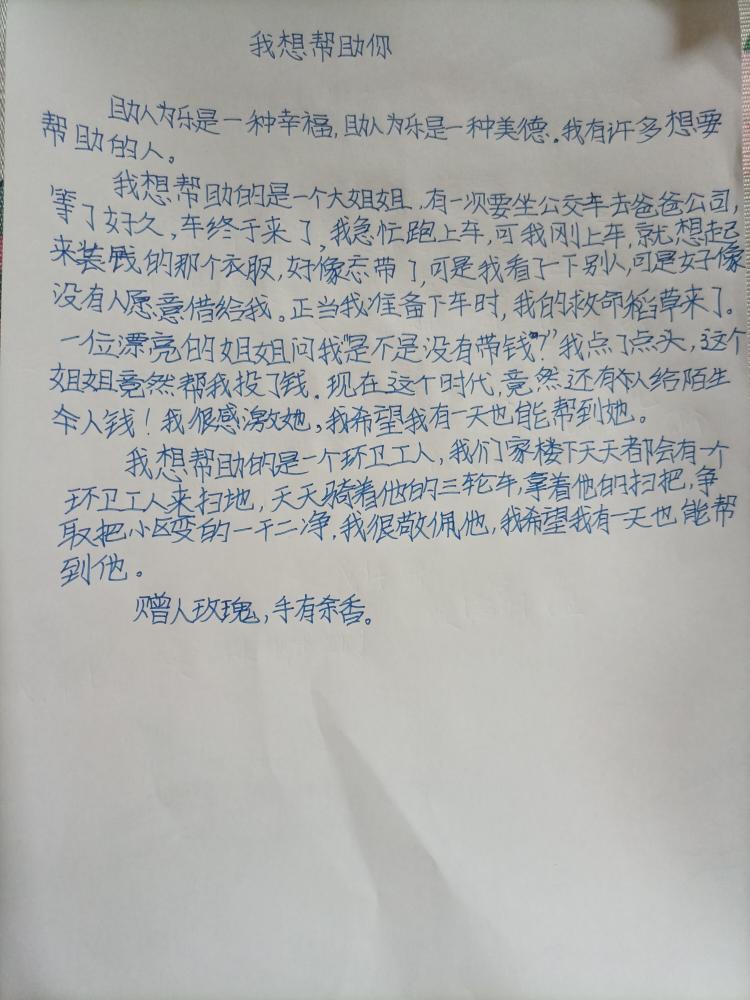 我想帮助你
助人为乐是一种幸福,助人为乐是一种美德。我有许多想要
帮助的人。
我想帮助的是一个大姐姐,有一次要坐公交车去爸爸公司,
等了好久,车终于来了,我急忙跑上车,可我刚上车,就想起
来装钱的那个衣服,好像忘带了,可是我看了一下别人,可是好像
没有人愿意借给我。正当我准备下车时,我的救命稻草来了。
一位漂亮的姐姐问我"是不是没有带钱?"我点了点头,这个
姐姐竟然帮我投了钱。现在这个时代,竟然还有人给陌生
人钱!我很感激她,我希望我有一天也能帮到她。
我想帮助的是一个环卫工人,我们家楼下天天都会有一个
环卫工人来扫地,天天骑着他的三轮车,拿着他的扫把,争
取把小区变的一干二净,我很敬佩他,我希望我有一天也能帮
到他。
赠人玫瑰,手有余香。